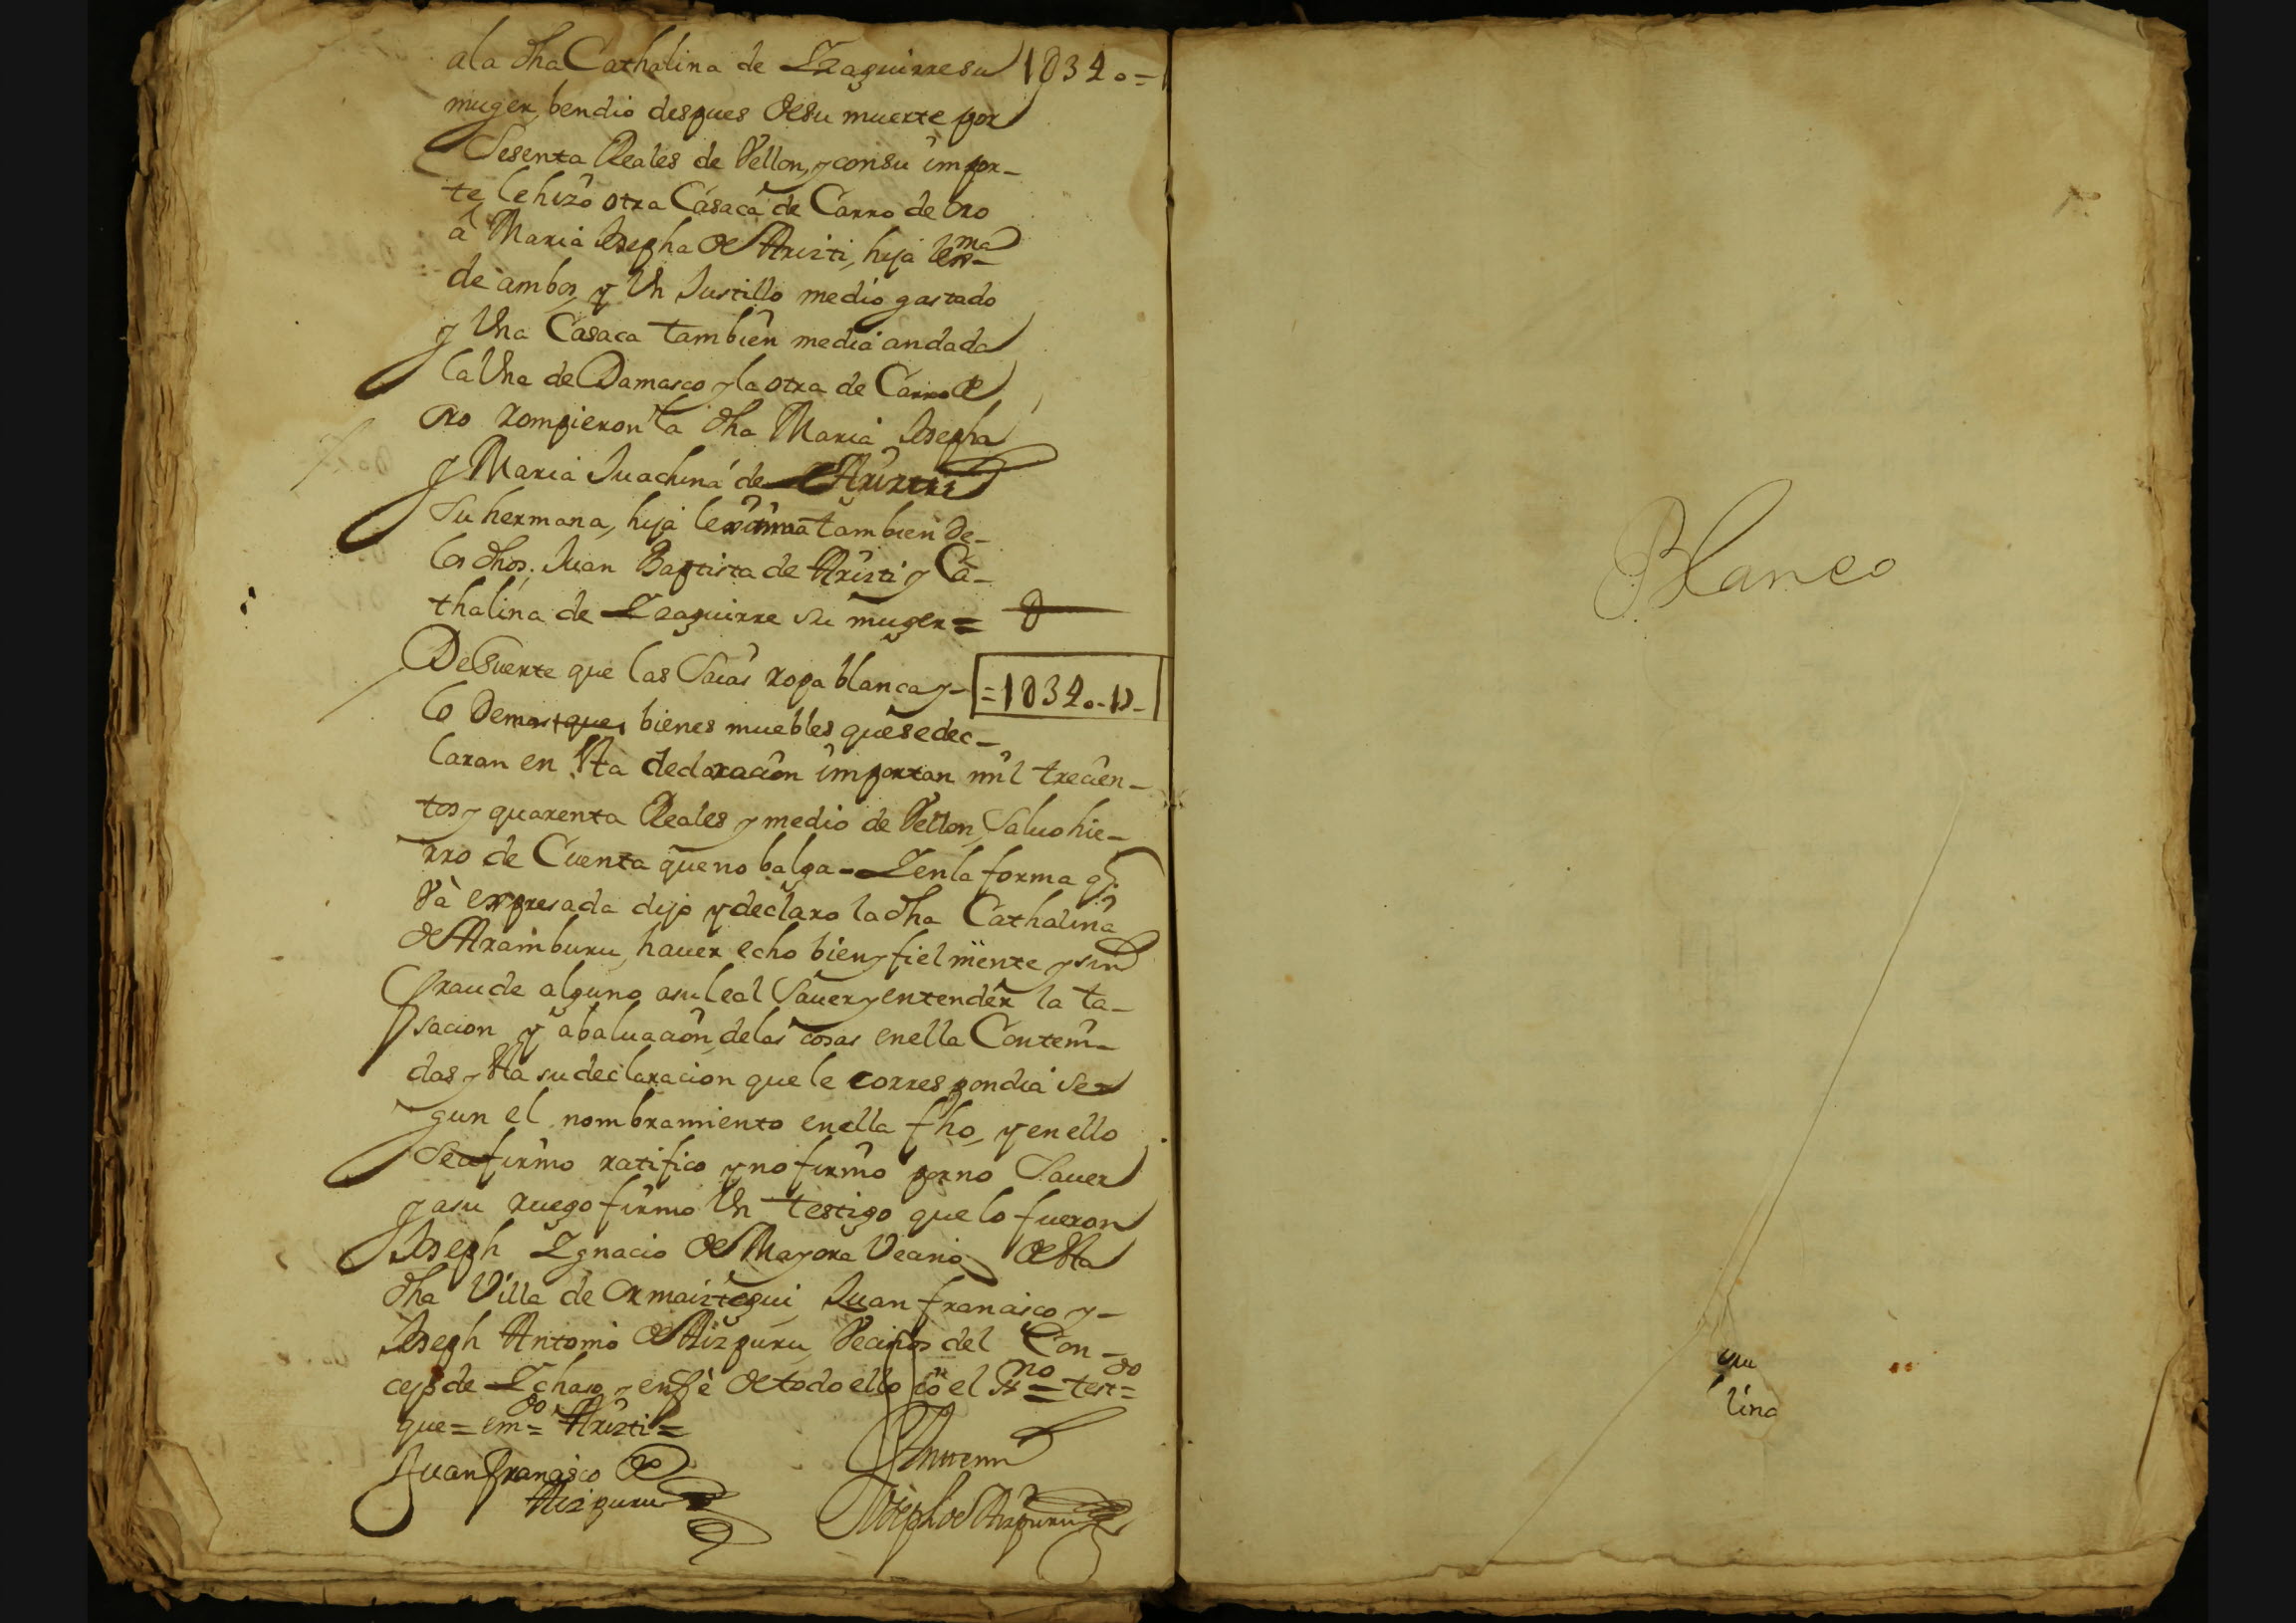 ala dha Cathalina de Yzaguirre su 1034o=
muger, bendio despues desu muerte por
Sesenta Reales de Vellon, y consu impor-
te, le hizo otra Casaca de Carro de oro
â Maria Josepha de Aristi, hija lexma
de ambos, y Un Justillo medio gastado
y Una Casaca tambien media andada
la Una de Damasco y la otra de Carro de
oro rompieron la dha Maria Josepha
y Maria Juachina de Aristi
su hermana, hija lexitima tambien de-
los dhos. Juan Baptista de Aristi y Ca-
thalina de Yzaguirre su muger=
De Suerte que las Saias ropa blanca y- =1034o-12-
lo Demas que bienes muebles que se dec-
laran en Sta declaracion importan mil trecien-
tos y quarenta Reales y medio de Vellon, Saluo hie-
rro de Cuenta que no balga= Yenla forma q̃.
Và expresada dijo y declaro la dha Cathalina
de Aramburu, hauer echo bien y fielmente y sin
fraude alguno asu leal Sauer y entender la ta-
sacion y abaluacion delas cosas enella Conteni-
das y Sta su declaracion que le correspondia Se-
gun el nombramiento enella fho, y enello
Se afirmo ratifico y no firmo por no Sauer
y asu ruego firmo Un testigo que lo fueron
Joseph Ygnacio de Mayora Vecino de Sta
dha Villa de Ormaiztegui, Juan francisco y-
Joseph Antonio de Aizpuru, Vecinos del Con-
cejo de Ychaso, y enfè de todo ello yo el Sno= testdo=
que= emdo= Aristi=
Juan Francisco de
Aizpuru
Antemi
Joseph de Aizpuru
Blanco
lina